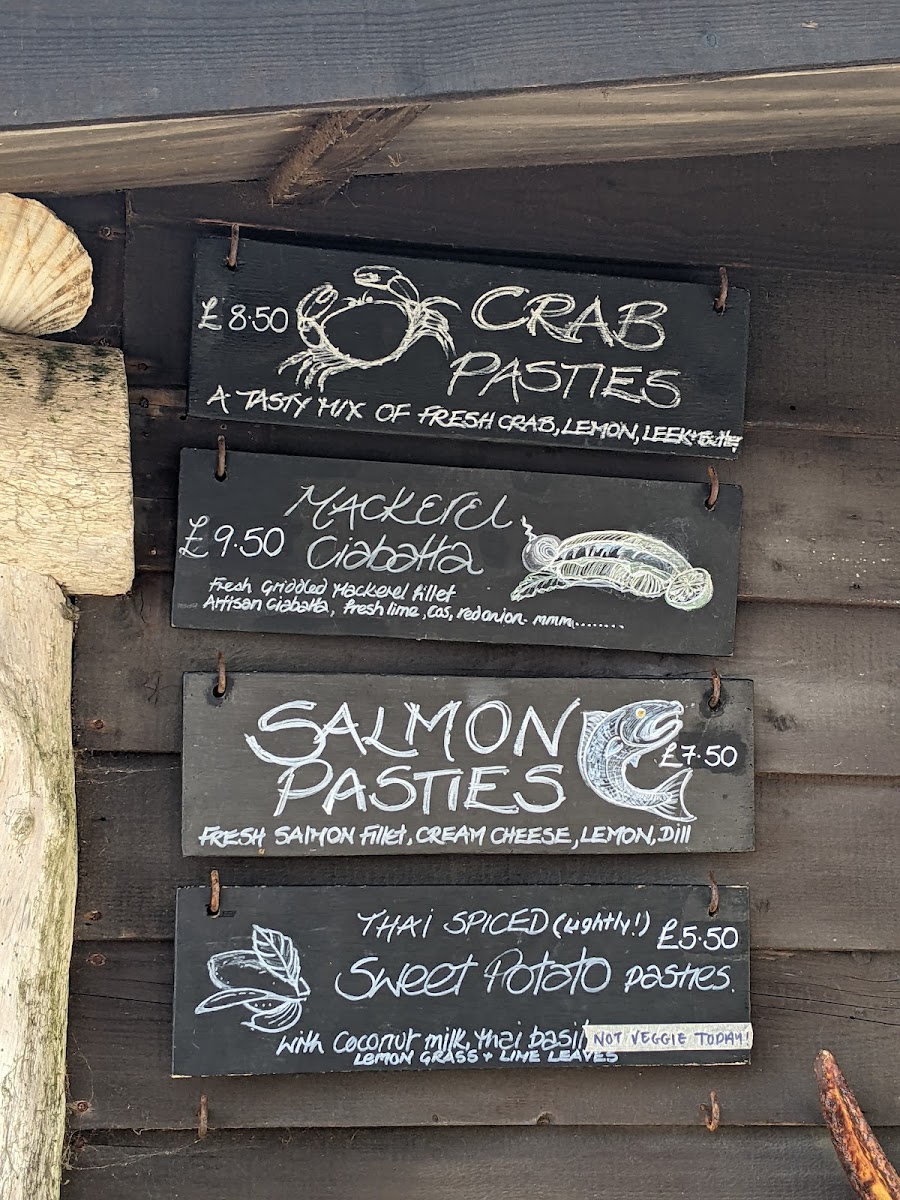 £8.50
CRAB
PASTIES
A TASTY MIX OF FRESH CRAB, LEMON, LEEK + Butter
MACKEREL
£9.50
Ciabatta
Fresh Griddled Mackerel fillet
Artisan Ciabatta, fresh lime, Cos, red onion. mmm........
SALMON
£7.50
PASTIES
FRESH SALMON Fillet, CREAM CHEESE, LEMON, Dill
THAI SPICED (Lightly!)
£5.50
Sweet Potato pasties.
with Coconut milk, thai basil
NOT VEGGIE TODAY!
LEMON GRASS + LIME LEAVES